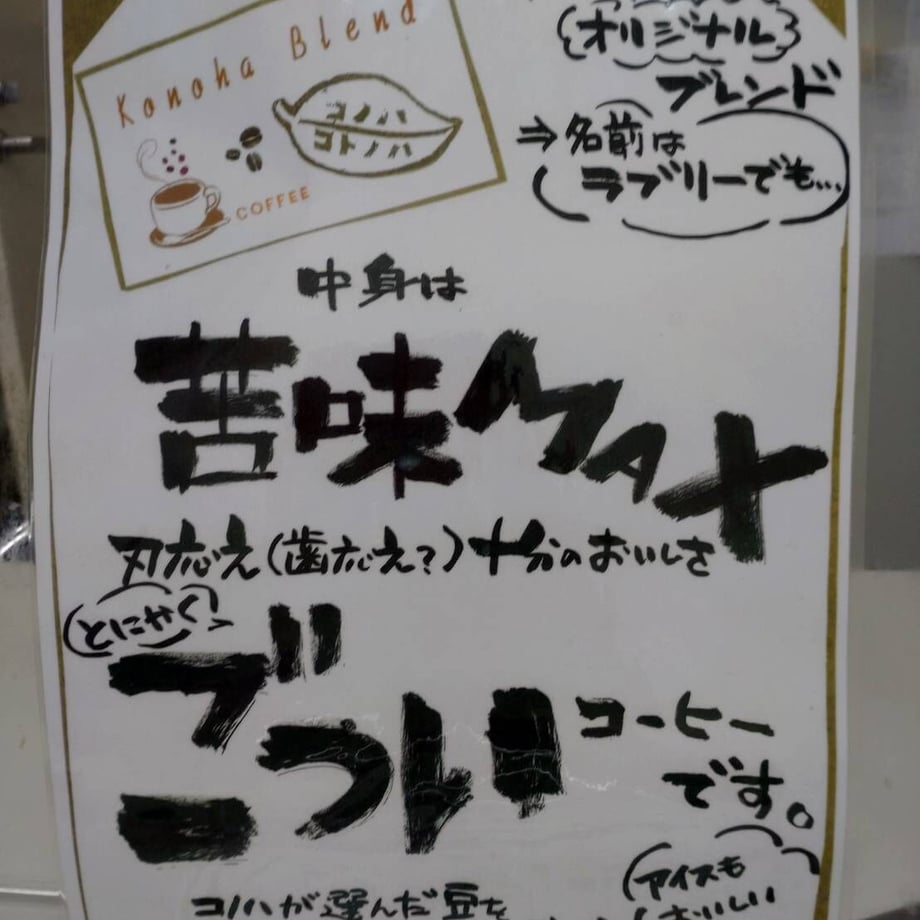 Konoha Blend
コノハ
コトノハ
COFFEE
オリジナル
ブレンド
⇒名前は
ラブリーでも…
中身は
苦味MAX
刃応え(歯応え?)十分のおいしさ
とにかく
ごつい
コーヒー
です。
アイスも
おいしい
コノハが選んだ豆を